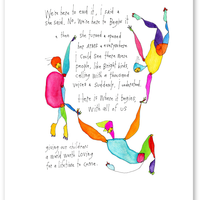 We're here to end it, I said &
she said, No. We're here to begin it
& then she turned & spread
her arms & everywhere
I could see there were
people, like bright birds,
calling with a thousand
voices & suddenly, I understood.
Here is where it begins,
with all of us
giving our children
a world worth loving
for a lifetime to come.